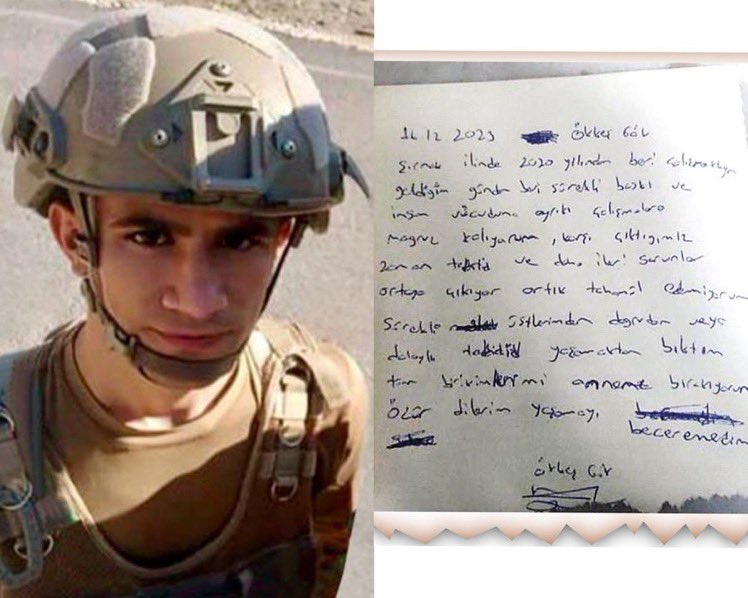 16 12 2023 Ökkeş Gök
Şırnak ilinde 2020 yılından beri çalışmaktayım
geldiğim günden beri sürekli baskı ve
insan vücuduna aykırı çalışmalara
mağruz kalıyorum, karşı çıktığımız
zaman tehdid ve daha ileri sorunlar
ortaya çıkıyor artık tahamül edemiyorum
sürekli üstlerimden doğrudan veya
dolaylı tehdid yaşamaktan bıktım
tüm birikimlerimi anneme bırakıyorum
Özür dilerim yaşamayı
beceremedim
Ökkeş Gök